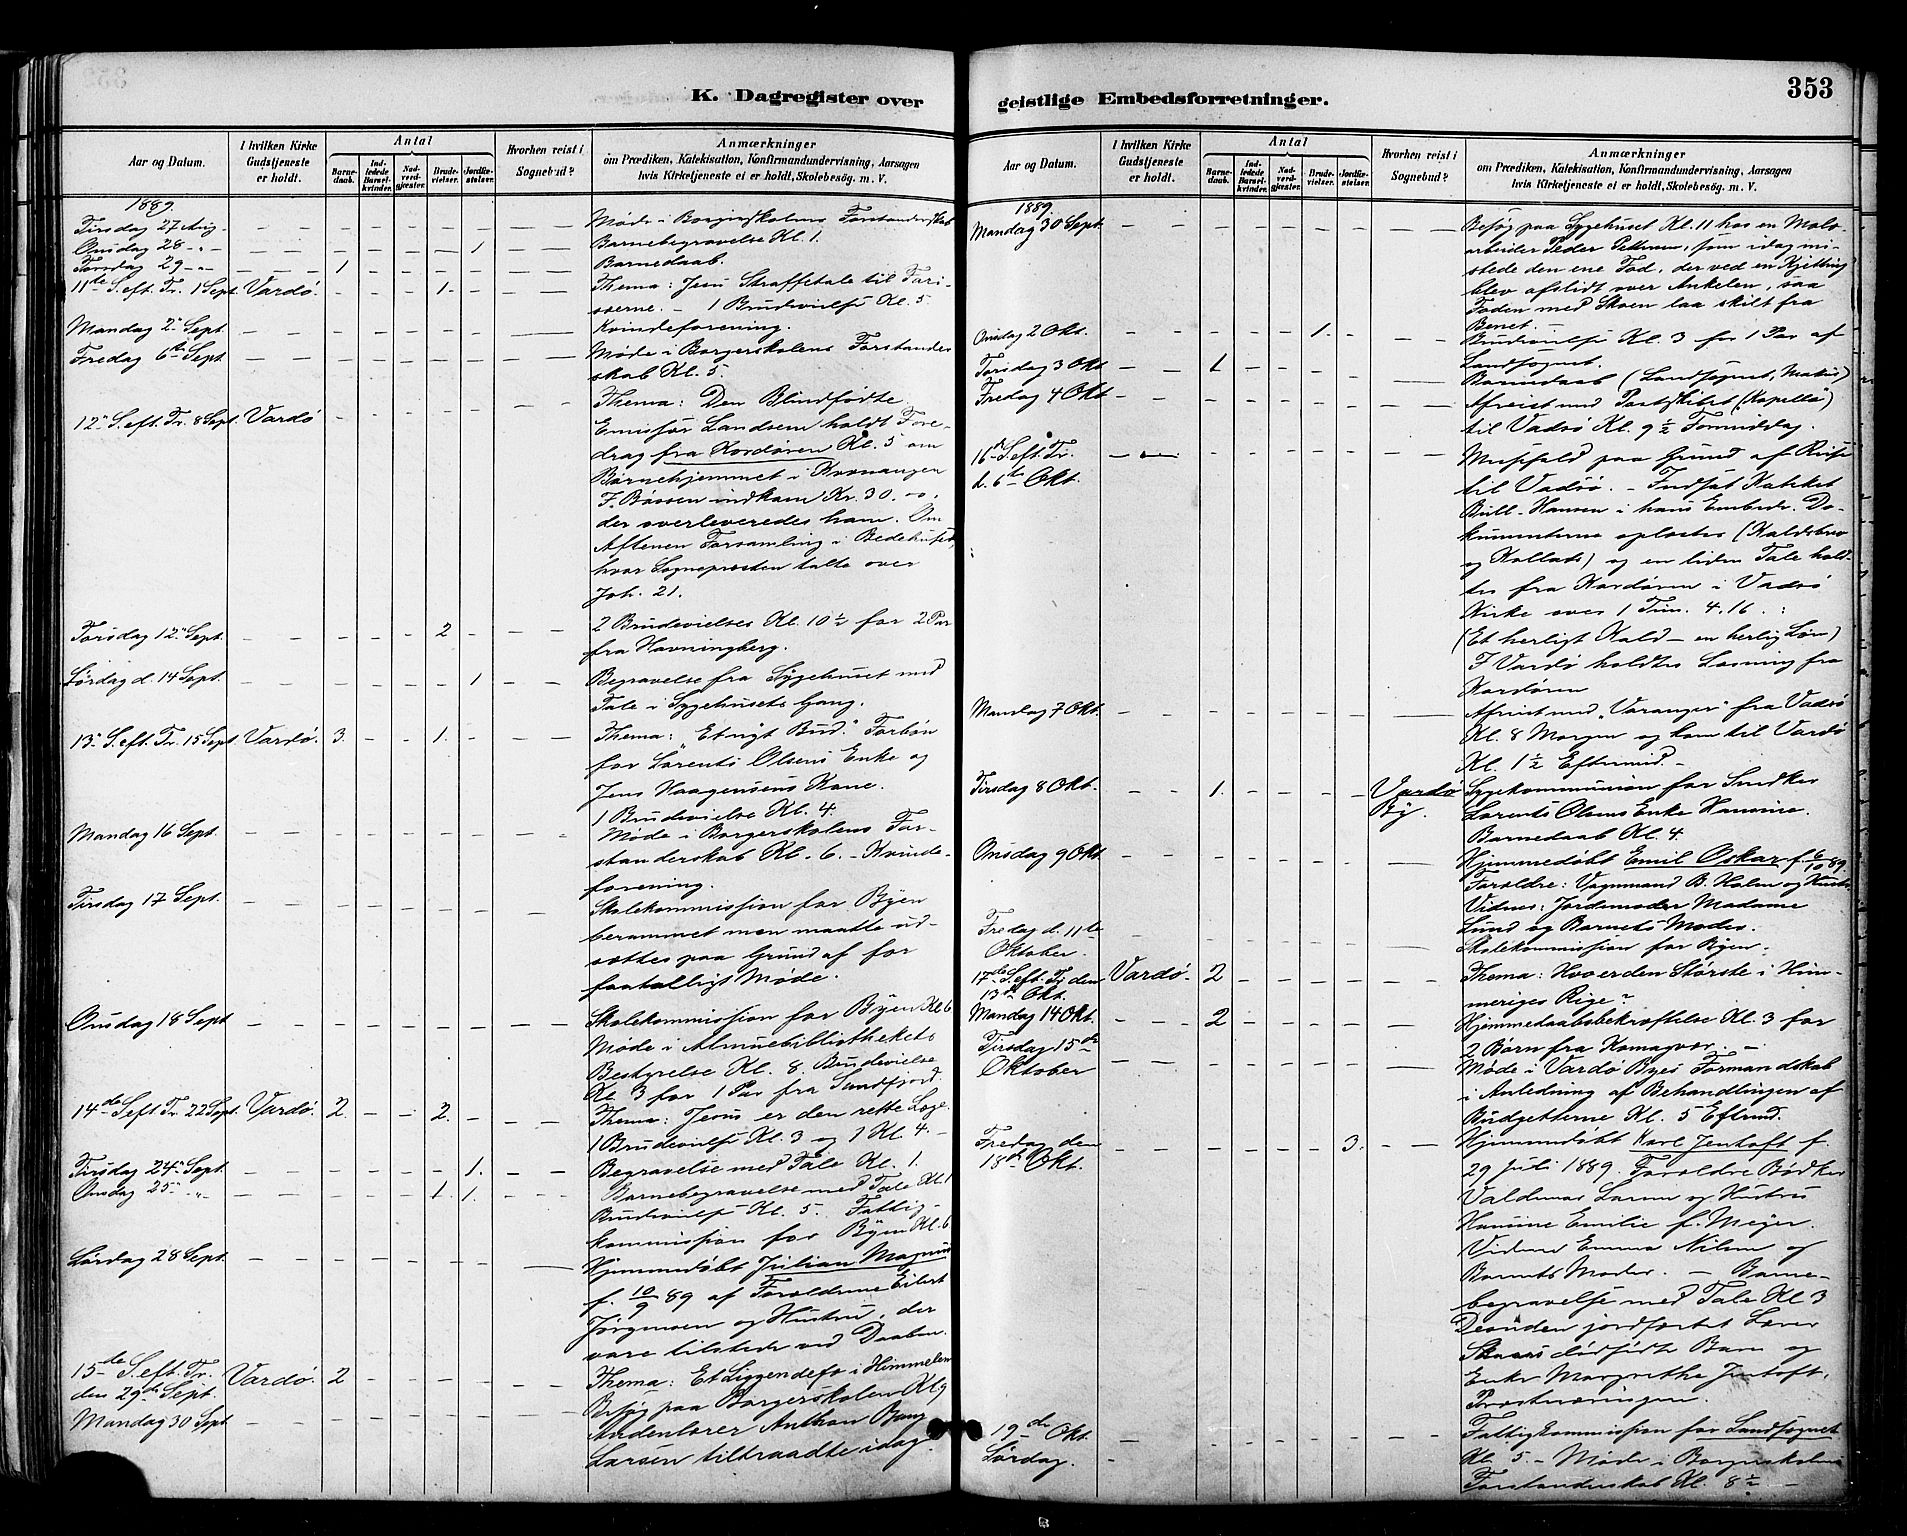 K. Dagregister over
Aar og Datum.
I hvilken Kirke Gudstjeneste er holdt.
Antal
Barnedaab.
Indledede Barselkvinder.
Nadverdgjester.
Brudevielser.
Jordfæstelser.
Hvorhen reist i Sognebud?
Anmærkninger
om Prædiken, Katekisation, Konfirmandundervisning, Aarsagen
hvis Kirketjeneste ei er holdt, Skolebesøg. m. V.
1889.
Tirsdag 27 Aug. - - - - - - - - Møde i Borgerskolens Forstanderskab
Onsdag 28 - " - 1 Barnebegravelse Kl. 1.
Torsdag 29 - " - 1 Barnedaab.
11te S. eft. Tr. 1 Sept. Vardø. 1. Thema: Jesu Straffetale til Fari-
sæerne. - 1 Brudevielse Kl. 5
Mandag 2den Sept. Kvindeforening.
Fredag 6te Sept. Møde i Borgerskolens Forstander
skab Kl. 5.
12te S. eft. Tr. 8 Sept. Vardø Thema: Den Blindfødte.
Emissær Landsem holdt Fore-
drag fra Kordøren Kl. 5 om
Børnehjemmet i Kvænangen
I Bøssen indkom Kr. 30.00.
der overleveredes ham. Om
Aftenen Forsamling i Bedehuset,
hvor Sognepræsten talte over
Joh. 21.
Torsdag 12te Sept. 2 2 Brudevielser Kl. 10 1/2 for 2 Par
fra Havningberg.
Lørdag d. 14 Sept. 1 Begravelse fra Sygehuset med
Tale i Sygehusets Gang.
13de S. eft. Tr. 15 Sept. Vardø. 3. 1. Thema: "Et nyt Bud." Forbøn
for Lorents Olsens Enke og
Jens Haagensens Kone.
1 Brudevielse Kl. 4.
Mandag 16 Sept. Møde i Borgerskolens For-
standerskab Kl. 6. - Kvinde-
forening.
Tirsdag 17 Sept. Skolekommission for Byen
berammet men maatte ud-
sættes paa Grund af for
faatalligt Møde.
Onsdag 18 Sept. Skolekommission for Byen Kl. 6
Møde i Almuebibliothekets
Bestyrelse Kl. 8. Brudevielse
Kl. 3 for 1 Par fra Sandfjord.
14de S. eft. Tr. 22 Sept. Vardø. 2. 2. Thema: Jesus er den rette Læge.
1 Brudevielse Kl. 3 og 1 Kl. 4. -
Tirsdag 24de Sept. 1. Begravelse med Tale Kl. 1.
Onsdag 25 " " 1 1. Barnebegravelse med Tale Kl. 1
Brudevielse Kl. 5. Fattig-
kommission for Byen Kl. 6
Lørdag 28 Sept. Hjemmedøbt Julian Magnus
f. 10/9 89 af Forældrene Eilert
Jørgensen og Hustru, der
vare tilstede ved Daaben.
15de S. eft. Tr.
den 29de Sept. Vardø. 2 Thema: Et Liggendefæ i Himmelen
Mandag 30 Sept. Besøg paa Borgerskolen Kl. 9
Andenlærer Anthon Bang
Larsen tiltraadte idag.
geistlige Embedsforretninger.
353
Aar og Datum.
I hvilken Kirke Gudstjeneste er holdt.
Antal
Barnedaab.
Indledede Barselkvinder.
Nadverdgjester.
Brudevielser.
Jordfæstelser.
Hvorhen reist i Sognebud?
Anmærkninger
om Prædiken, Katekisation, Konfirmandundervisning, Aarsagen
hvis Kirketjeneste ei er holdt, Skolebesøg. m. V.
1889.
Mandag 30 Sept. Besøg paa Sygehuset Kl. 11 hos en Molo-
arbeider Peder Pettersen, som idag mi-
stede den ene Fod, der ved en Kjetting
blev afslidt over Ankelen, saa
Foden med Skoen laa skilt fra
Benet. -
Onsdag 2 Okt. 1. Brudevielse Kl. 3 for 1 Par af
Landsognet.
Torsdag 3 Okt. 1 Barnedaab (Landsognet, Makur)
Fredag 4 Okt. Afreist med Postskibet (Kapellø)
til Vadsø Kl. 9 1/2 Formiddag.
16de S. eft. Tr.
d. 6te Okt. Messefald paa Grund af Reise
til Vadsø. - Indsat Kateket
Bull-Hansen i hans Embede. Do-
kumenterne oplæstes (Kaldsbrev
og Kollats) og en liden Tale hold-
tes fra Kordøren i Vadsø
Kirke over 1 Tim. 4.16. :
(Et herligt Kald - en herlig Løn)
I Vardø holdtes Læsning fra
Kordøren
Mandag 7 Okt. Afreist med "Varanger" fra Vadsø
Kl. 8 Morgen og kom til Vardø
Kl. 1 1/2 Eftermid. -
Tirsdag 8 Okt. 1. Vardø By. Sygekommunion for Snedker
Lorents Olsens Enke Hansine.
Barnedaab Kl. 4.
Onsdag 9 Okt. Hjemmedøbt Emil Oskar f. 6/10 89.
Forældre: Vognmand B. Holm og Hustru.
Vidner: Jordemoder Madame
Lund og Barnets Moder.
Fredag d. 11te
Oktober. Skolekommission for Byen.
17de S. eft. Tr. den
13de Okt. Vardø. 2 Thema: Hvo er den Største i Him-
meriges Rige?
Mandag 14 Okt. 2 Hjemmedaabsbekræftelse Kl. 3 for
2 Børn fra Komagvær. -
Tirsdag 15de
Oktober Møde i Vardø Byes Formandskab
i Anledning af Behandlingen af
Budgetterne Kl. 5 Eftmd.
Fredag den
18de Okt. 3. Hjemmedøbt Karl Jentoft f.
29 Juli 1889. Forældre Bødker
Valdemar Larsen og Hustru
Hansine Emilie f. Meyer.
Vidner Emma Nilsen og
Barnets Moder. - Barne-
begravelse med Tale Kl. 3
Desuden jordfæstet Lærer
dødfødte Barn og
Enke Margrethe Jentoft,
Præstnæringen.
19de Okt.
Lørdag. Fattigkommission for Landsognet
Kl. 5. - Møde i Borgerskolens
Forstanderskab Kl. 8 1/2. -